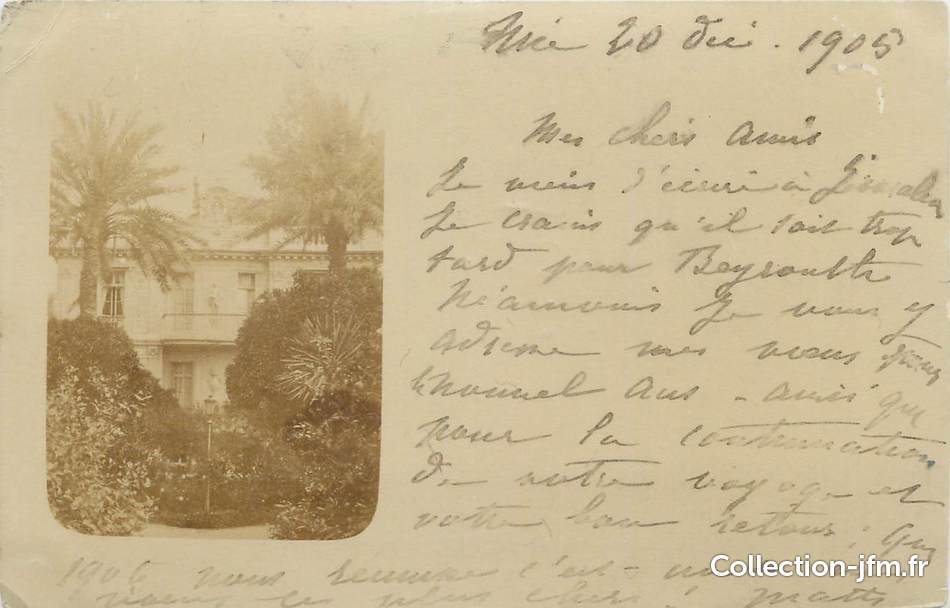 Nice 20 Déc. 1905
Mes chers Amis
Je viens d'écrire à Jérusalem
Je crains qu'il soit trop
tard pour Beyrouth
Néamoins Je vous y
adresse mes vœux pour
le nouvel Ans - ainsi que
pour la continuation
de votre voyage et
votre bon retour. Que
1906 nous réunisse c'est
vœux les plus chers !
Collection-jfm.fr